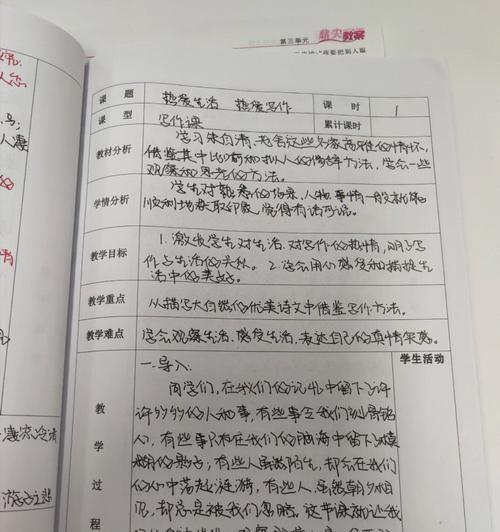 第三单元
鼎尖教案
课 题 热爱生活 热爱写作 课 时 1
课 型 写作课 累计课时
教材分析 学习朱自清、老舍这些名家高雅的情怀,
借鉴其中比喻和拟人的修辞方法,学会一些
观察和思考的方法。
学情分析 学生对熟悉的场景、人物、事情一般都能
顺利地获取印象,觉得有话可说。
教学目标 1.激发学生对生活、对写作的热情,明了写
作与生活的关系。2.学会用心感受和捕捉生
活中的美好。
教学重点 从描写大自然的优美诗文中借鉴写作方法。
教学难点 学会观察生活,感受生活,表达自己的真情实感。
一.导入: 学生活动
教学过程
同学们,在我们的记忆中留下了许
许多多的人和事,有些事令我们刻骨铭
心,有些事只在我们的脑海中留下模
糊的影子;有些人虽然陌生,却会在我们
心中荡起涟漪,有些人虽然朝夕相
见,却总是被我们忽略。这节课就让我